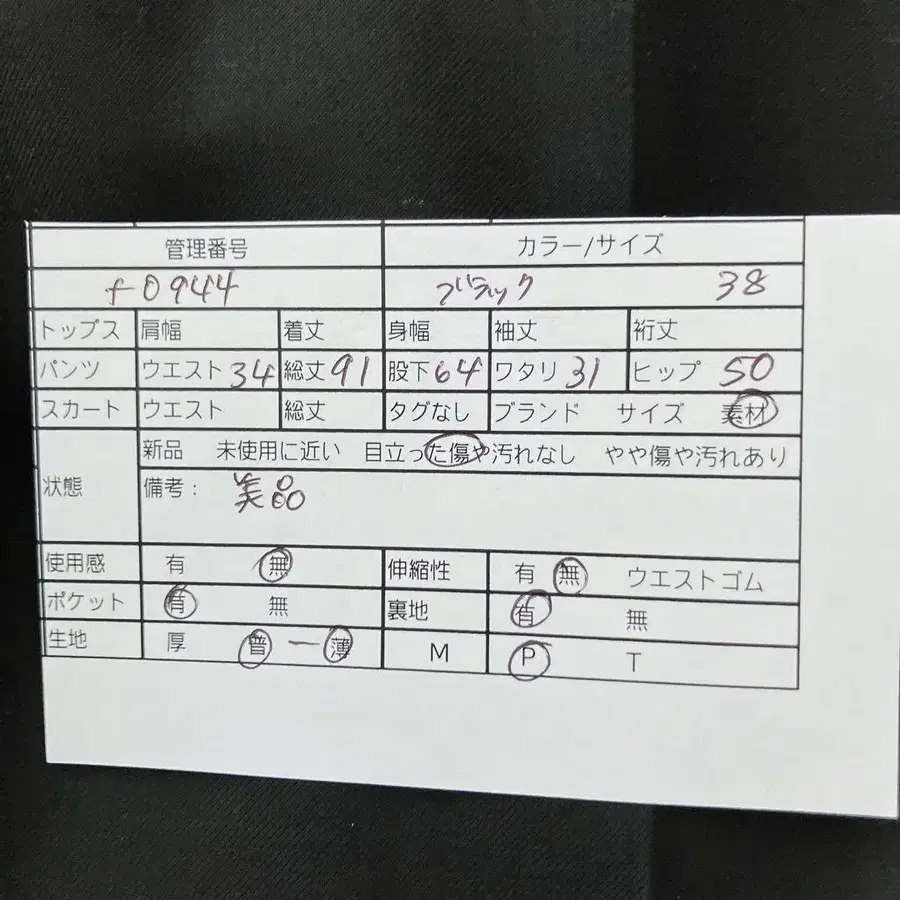 管理番号 カラー/サイズ
f0944 ブラック 38
トップス 肩幅 着丈 身幅 袖丈 裄丈
パンツ ウエスト 34 総丈 91 股下 64 ワタリ 31 ヒップ 50
スカート ウエスト 総丈 タグなし ブランド サイズ 素材
新品 未使用に近い 目立った傷や汚れなし やや傷や汚れあり
状態 備考: 美品
使用感 有 無 伸縮性 有 無 ウエストゴム
ポケット 有 無 裏地 有 無
生地 厚 普 ー 薄 M P T